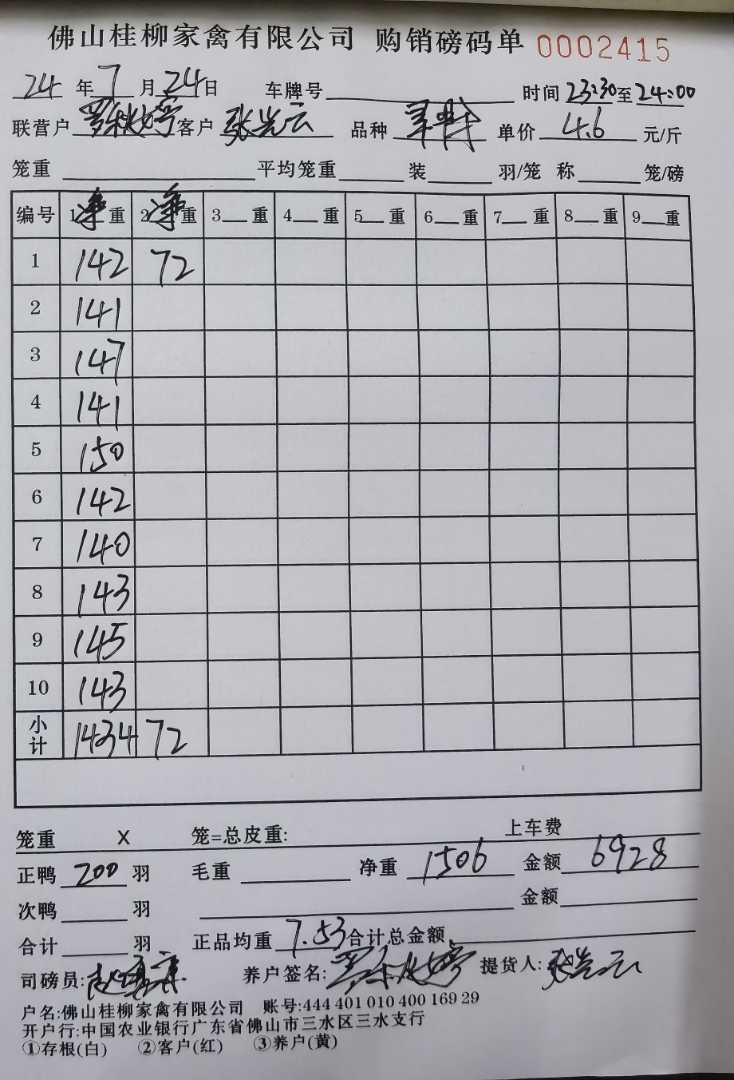 佛山桂柳家禽有限公司 购销磅码单 0002415
24 年 7 月 24 日 车牌号 时间 23:30 至 24:00
联营户 客户 张光云 品种 单价 4.6 元/斤
笼重 平均笼重 装 羽/笼 称 笼/磅
编号 1净重 2净重 3 重 4 重 5 重 6 重 7 重 8 重 9 重
1 142 72
2 141
3 147
4 141
5 150
6 142
7 140
8 143
9 145
10 143
小计 1434 72
笼重 X 笼=总皮重: 上车费
正鸭 200 羽 毛重 净重 1506 金额 6928
次鸭 羽 金额
合计 羽 正品均重 7.53 合计总金额
司磅员: 养户签名: 提货人: 张光云
户名:佛山桂柳家禽有限公司 账号:444 401 010 400 169 29
开户行:中国农业银行广东省佛山市三水区三水支行
①存根(白) ②客户(红) ③养户(黄)